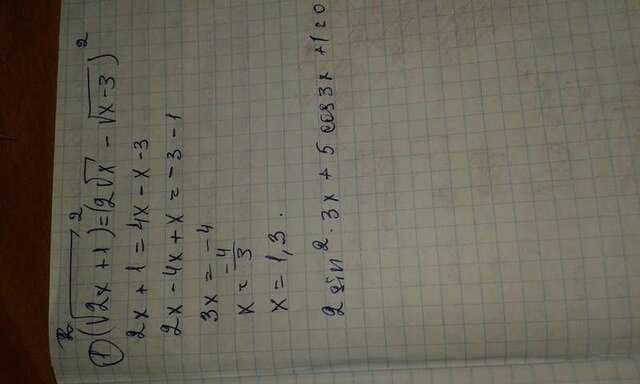 ① (√2x + 1)² = (2√x - √x-3)²
2x + 1 = 4x - x - 3
2x - 4x + x = -3 - 1
3x = -4
x = -4/3
x = 1,3.
2 sin². 3x + 5 cos3x + 1 = 0